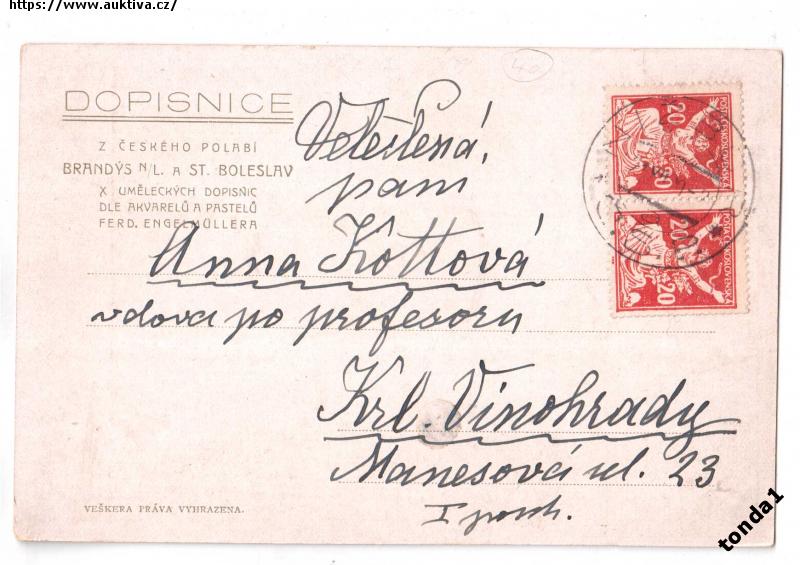 https://www.auktiva.cz/
40
DOPISNICE
Z ČESKÉHO POLABÍ
BRANDÝS N/L. A ST. BOLESLAV
X UMĚLECKÝCH DOPISNIC
DLE AKVARELŮ A PASTELŮ
FERD. ENGELMÜLLERA
Velectená,
paní
Anna Kôttová
vdova po profesoru
Krl. Vinohrady
Manesová ul. 23
I posch.
POŠTA ČESKOSLOVENSKÁ
20
20
POŠTA ČESKOSLOVENSKÁ
20
20
VEŠKERA PRÁVA VYHRAZENA.
tonda1